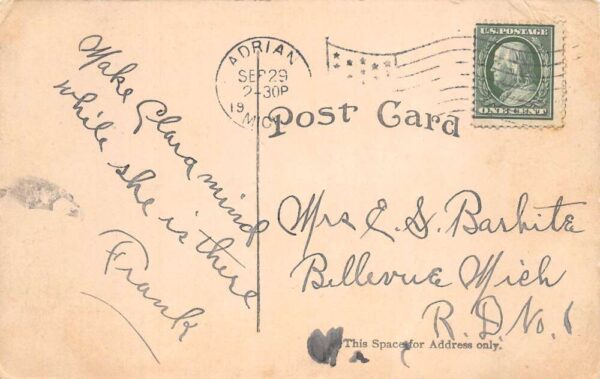 ADRIAN
SEP 29
2-30P
19
MICH
U.S. POSTAGE
ONE CENT
Post Card
Make Clara mind
while she is there
Frank
Mrs E. S. Barhite
Bellevue Mich
R.D. No. 1
This Space for Address only.